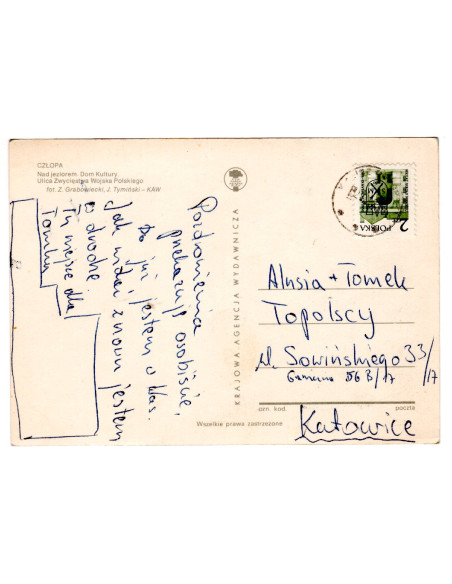 CZŁOPA
Nad jeziorem. Dom Kultury.
Ulica Zwycięstwa Wojska Polskiego
fot. Z. Grabowiecki, J. Tymiński – KAW
Pozdrowienia
przekazuję osobiście,
bo już jestem u Was.
Jak widać znowu jestem
w drodze
Tu miejsce dla
Tomka
KRAJOWA AGENCJA WYDAWNICZA
POLSKA
Alusia + Tomek
Topolscy
ul. Sowińskiego 33/17
56 B/17
Katowice
orn. kod
poczta
Wszelkie prawa zastrzeżone